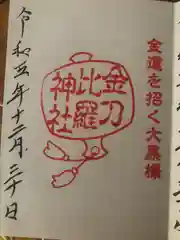 金運を招く大黒様
金刀
比羅
神社
令和五年十二月三十日